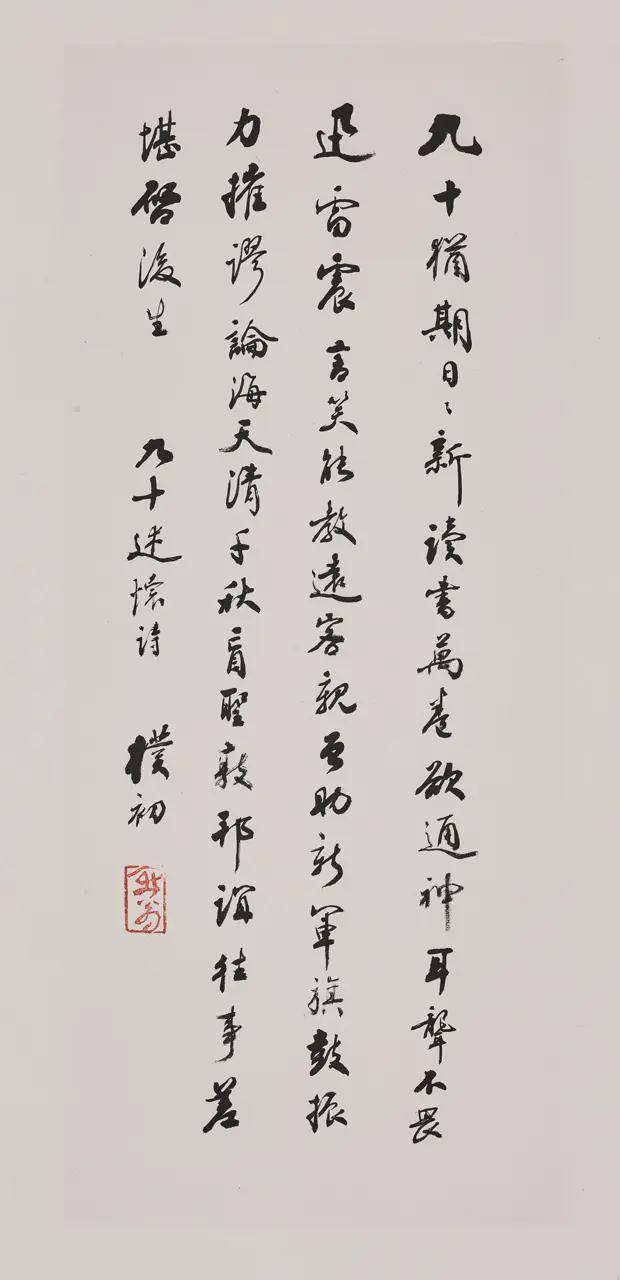 九十猶期日〻新读書萬卷欲通神耳聾不畏
迅雷震言笑能教遠客親曾助新軍旗鼓振
力摧謬論海天清千秋盲聖敦邦誼往事差
堪啓後生 九十述懷詩 樸初